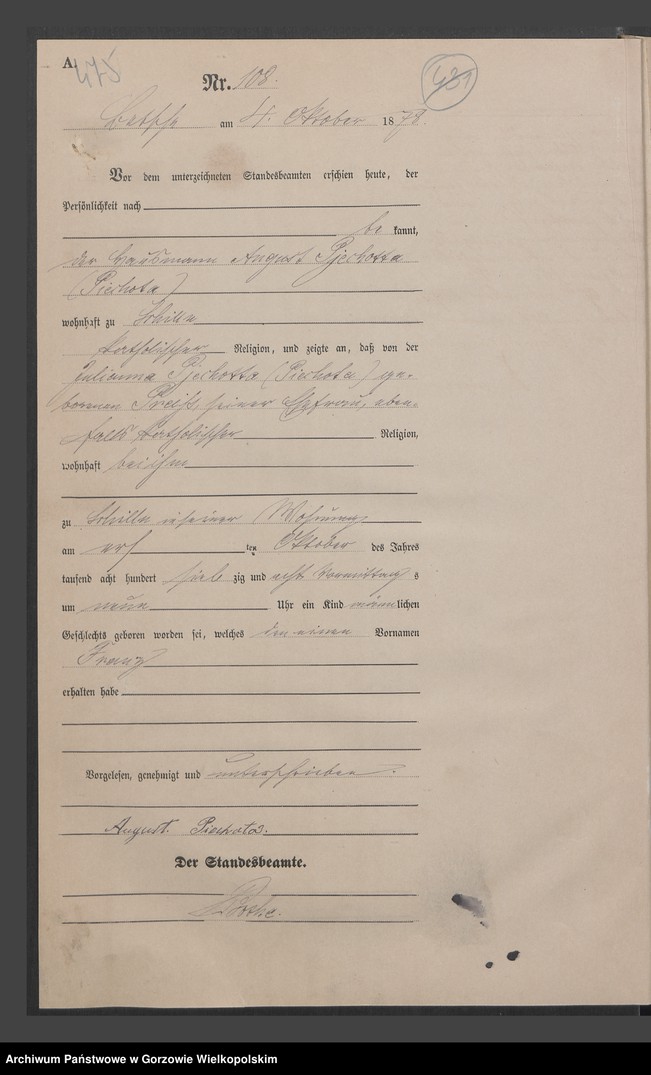 A.
475
Nr. 108.
431
Betsche am 4. Oktober 1878.
Vor dem unterzeichneten Standesbeamten erschien heute, der
Persönlichkeit nach
be kannt,
der Hausmann August Pjechotta
(Piechota)
wohnhaft zu Schilln
katholischer Religion, und zeigte an, daß von der
Julianna Pjechotta (Piechota) ge-
borenen seiner Ehefrau, eben-
falls katholischer Religion,
wohnhaft bei ihm
zu Schilln in seiner Wohnung
am ten Oktober des Jahres
tausend acht hundert sieb zig und acht Vormittag s
um neun Uhr ein Kind männ lichen
Geschlechts geboren worden sei, welches den einen Vornamen
Franz
erhalten habe
Vorgelesen, genehmigt und unterschrieben.
August. Piechota.
Der Standesbeamte.
Archiwum Państwowe w Gorzowie Wielkopolskim